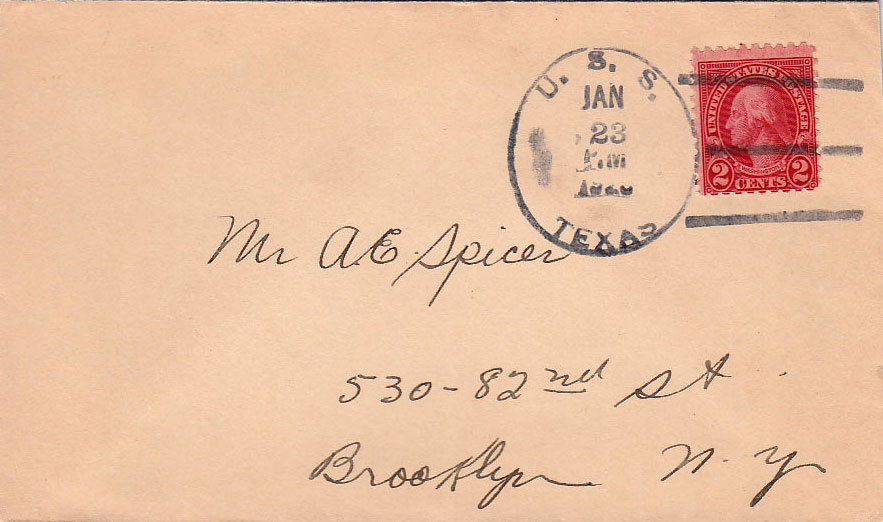 U. S. S.
JAN
23
TEXAS
UNITED STATES POSTAGE
WASHINGTON
2 CENTS 2
Mr A.E. Spicer
530-82nd St
Brooklyn N.Y